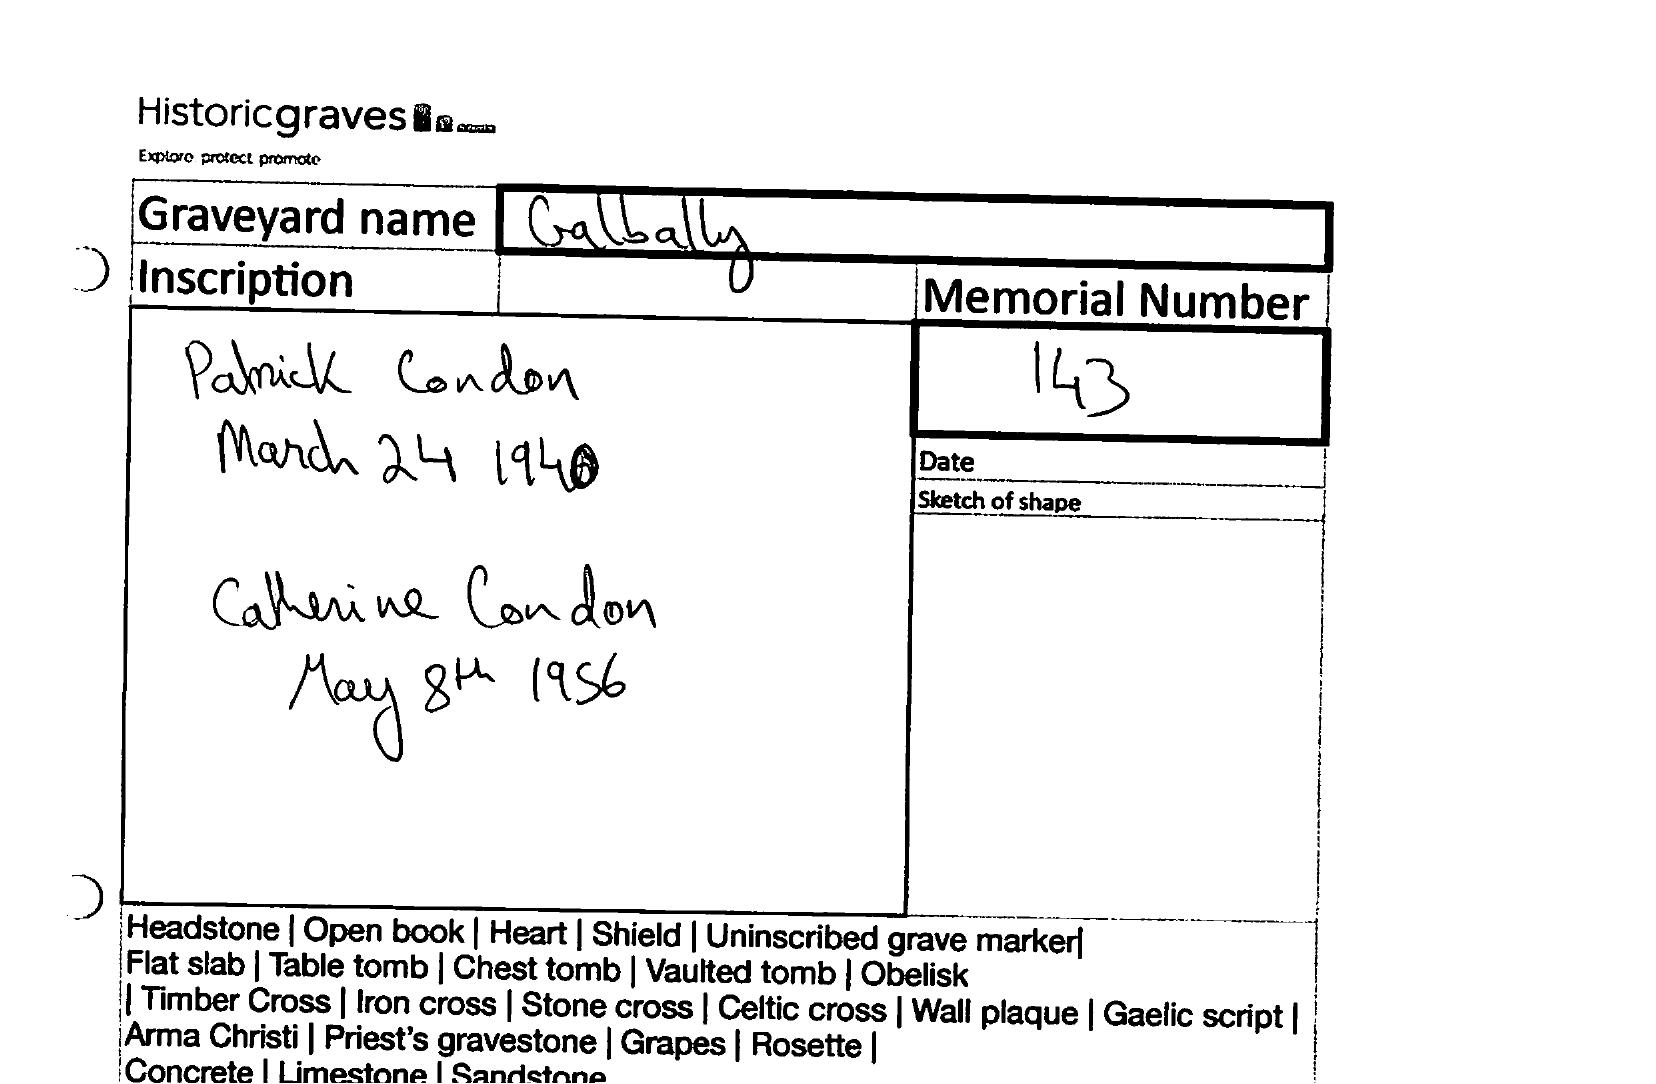 Historicgraves
Explore protect promote
Graveyard name Galbally
Inscription
Memorial Number
143
Date
Sketch of shape
Patrick Condon
March 24 1940
Catherine Condon
May 8th 1956
Headstone | Open book | Heart | Shield | Uninscribed grave marker|
Flat slab | Table tomb | Chest tomb | Vaulted tomb | Obelisk
| Timber Cross | Iron cross | Stone cross | Celtic cross | Wall plaque | Gaelic script |
Arma Christi | Priest's gravestone | Grapes | Rosette |
Concrete | Limestone | Sandstone